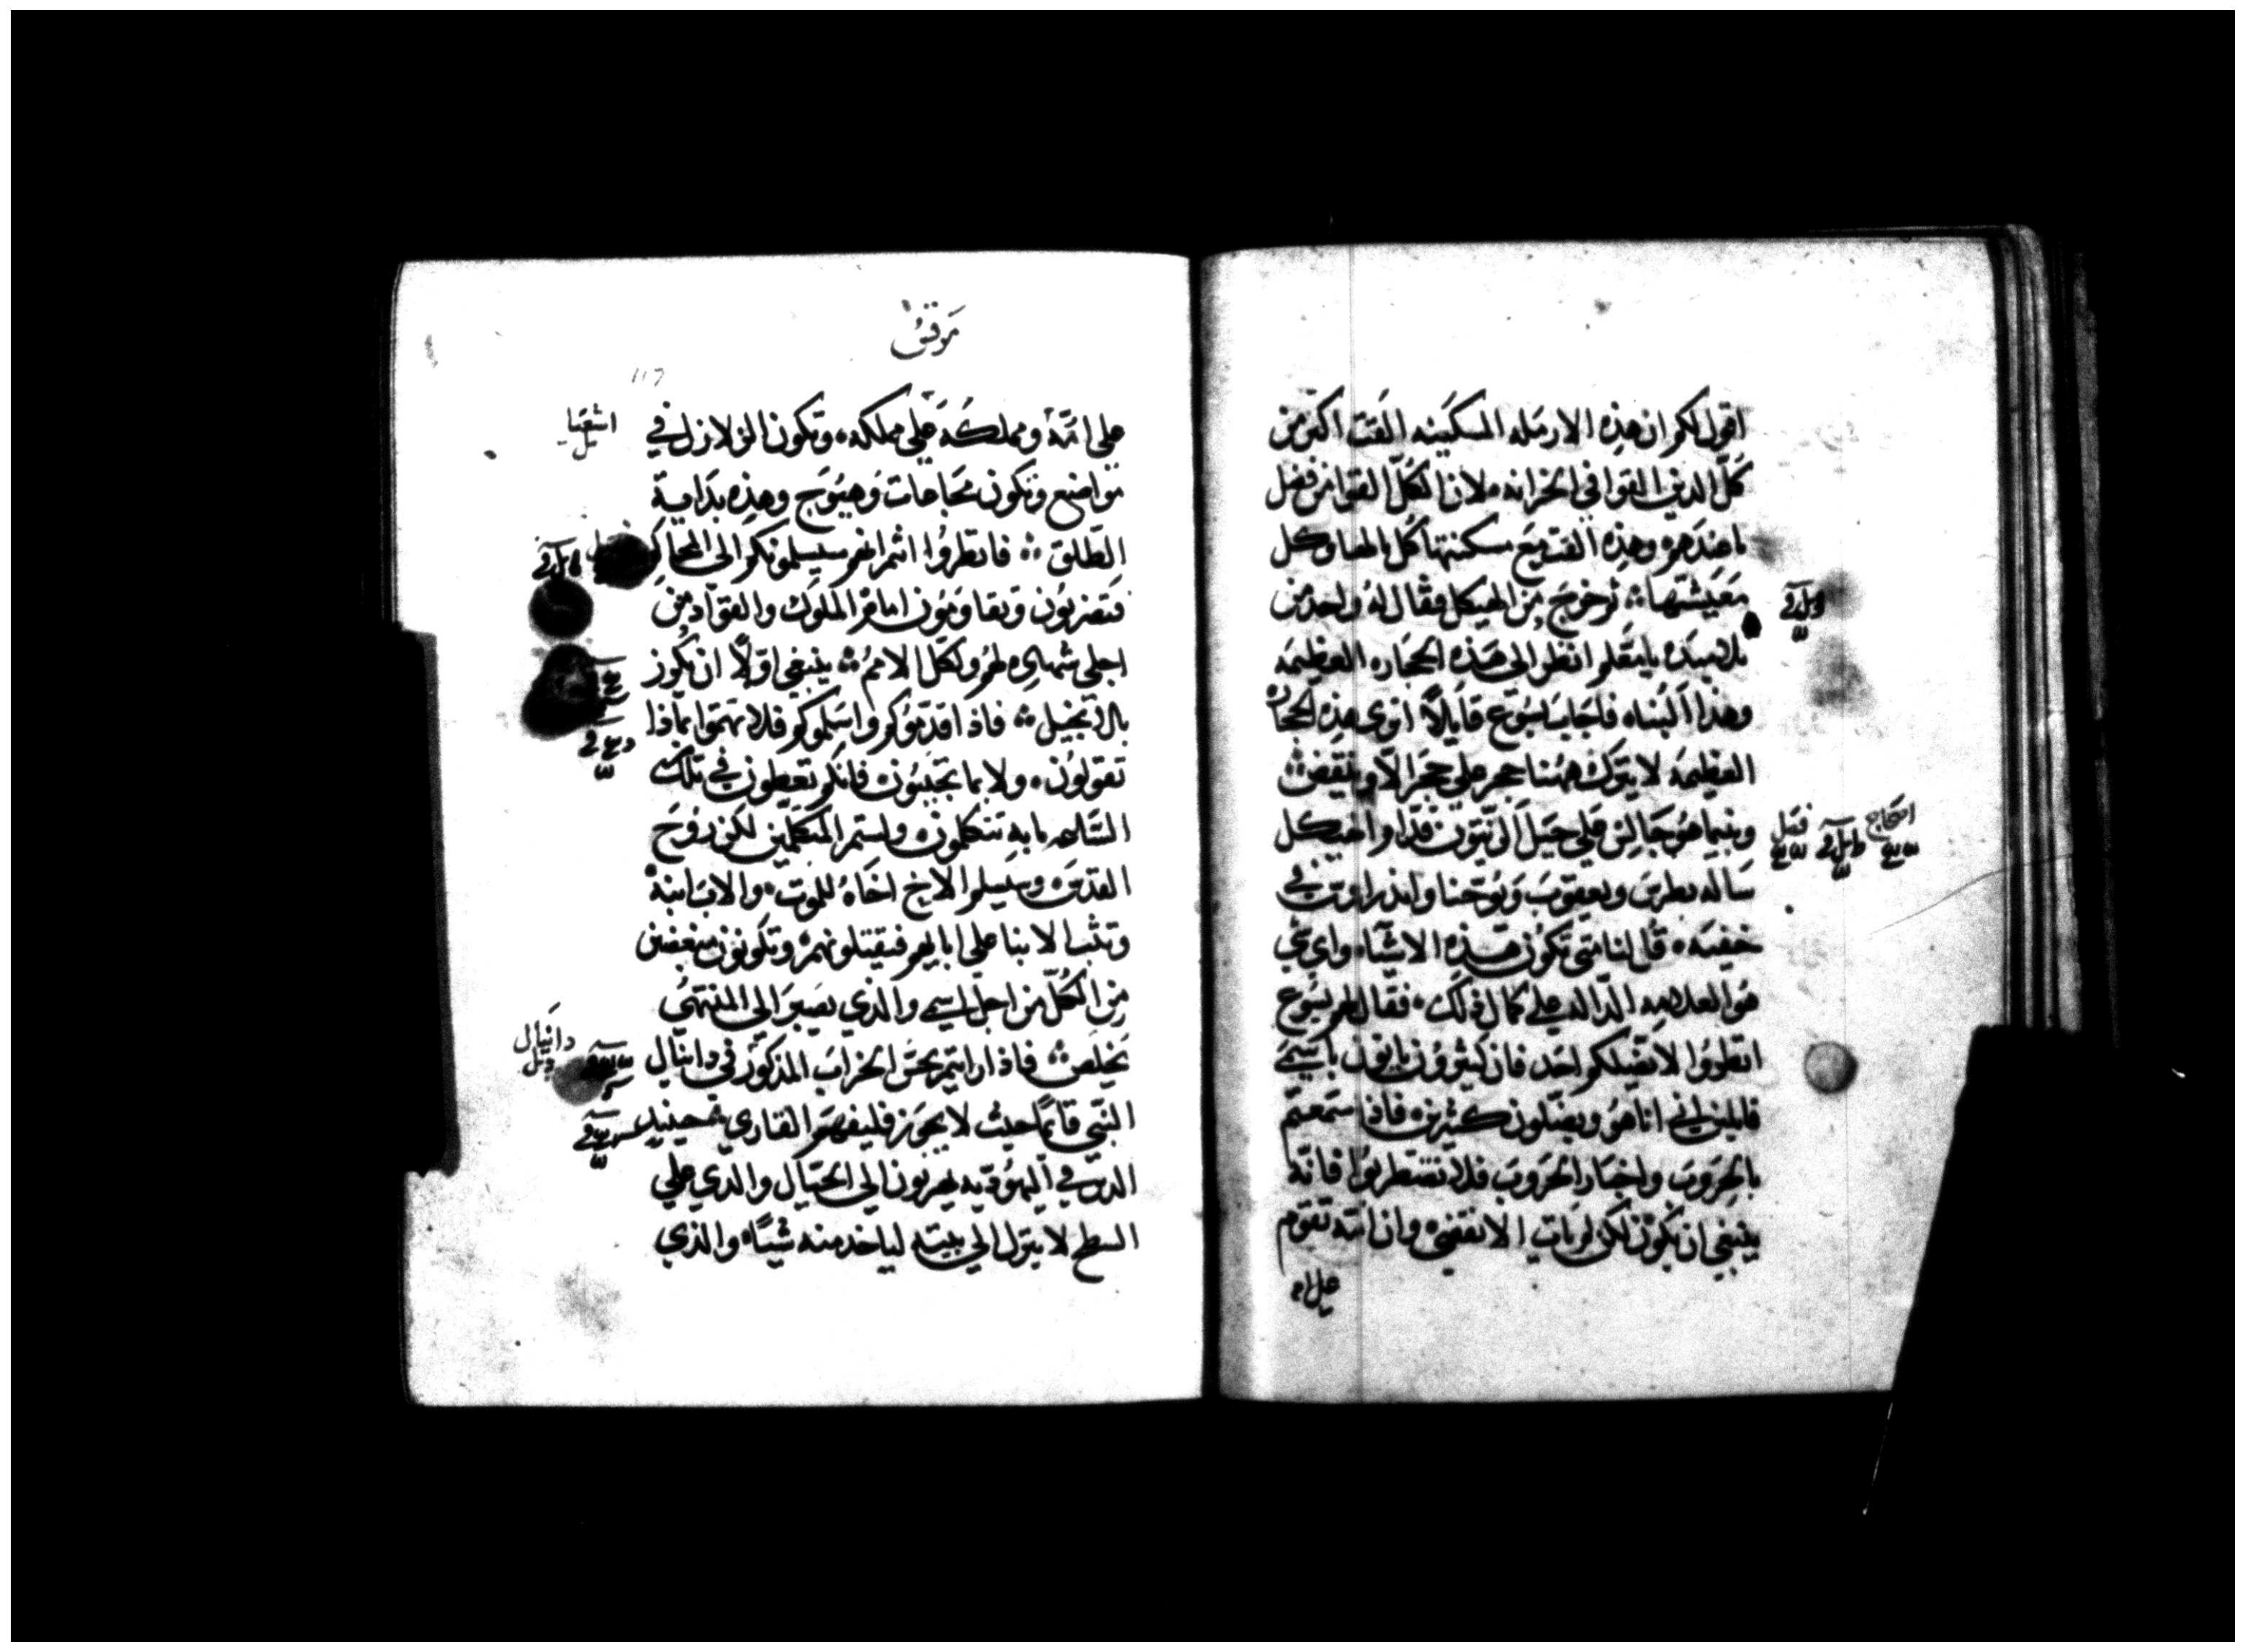 اقول لكم ان هذه الارمله المسكينه القت اكثر من
كل الدين القوا في الخزانه لان الكل القوا من فضل
ما عندهم وهذه القت مع مسكنتها كل مالها وكل
معيشتها ثم خرج من الهيكل فقال له واحد من
تلاميده يا معلم انظر الى هذه الحجاره العظيمه
وهذا البناء فاجاب يسوع قايلاً اترى هذه الحجاره
العظيمه لا يترك ههنا حجر على حجر الا وينقض
وبينما هو جالس على جبل الزيتون قدام الهيكل
ساله بطرس ويعقوب ويوحنا واندراوس في
خفيه قل لنا متى تكون هذه الاشياء واي شي
هو العلامه الداله على كمال ذلك فقال لهم يسوع
انظروا لا يضلكم احد فان كثيرون ياتون باسمي
قايلين اني انا هو ويضلون كثيرين فاذا سمعتم
بالحروب واخبار الحروب فلا تضطربوا فانه
ينبغي ان يكون لكن لم يات الانقضى وان امه تقوم
على امه
فصل
اصحاح
مرقس
١١٧
على امه ومملكه على مملكه وتكون الزلازل في
مواضع وتكون مجاعات وهيوج وهذه بداية
الطلق فانظروا انتم انهم سيسلمونكم الى المحا
فتضربون وتقاومون امام الملوك والقواد من
اجلي شهادة لهم ولكل الامم ينبغي اولاً ان يكون
بالانجيل فاذا قدموكم واسلموكم فلا تهتموا بماذا
تقولون ولا بما تجيبون فانكم تعطون في تلك
الساعه ما به تتكلمون ولستم المتكلمين لكن روح
القدس وسيسلم الاخ اخاه للموت والاب ابنه
وتثب الابنا على ابايهم فيقتلونهم وتكونون مبغضين
من الكل من اجل اسمي والذي يصبر الى المنتهى
يخلص فاذا رايتم نجس الخراب المذكور في دانيال
النبي قايماً حيث لا يجوز فليفهم القاري حينيد
الدين في اليهوديه يهربون الى الجبال والذي على
السطح لا ينزل الي بيته لياخد منه شياً والذي
اشعيا
دانيال